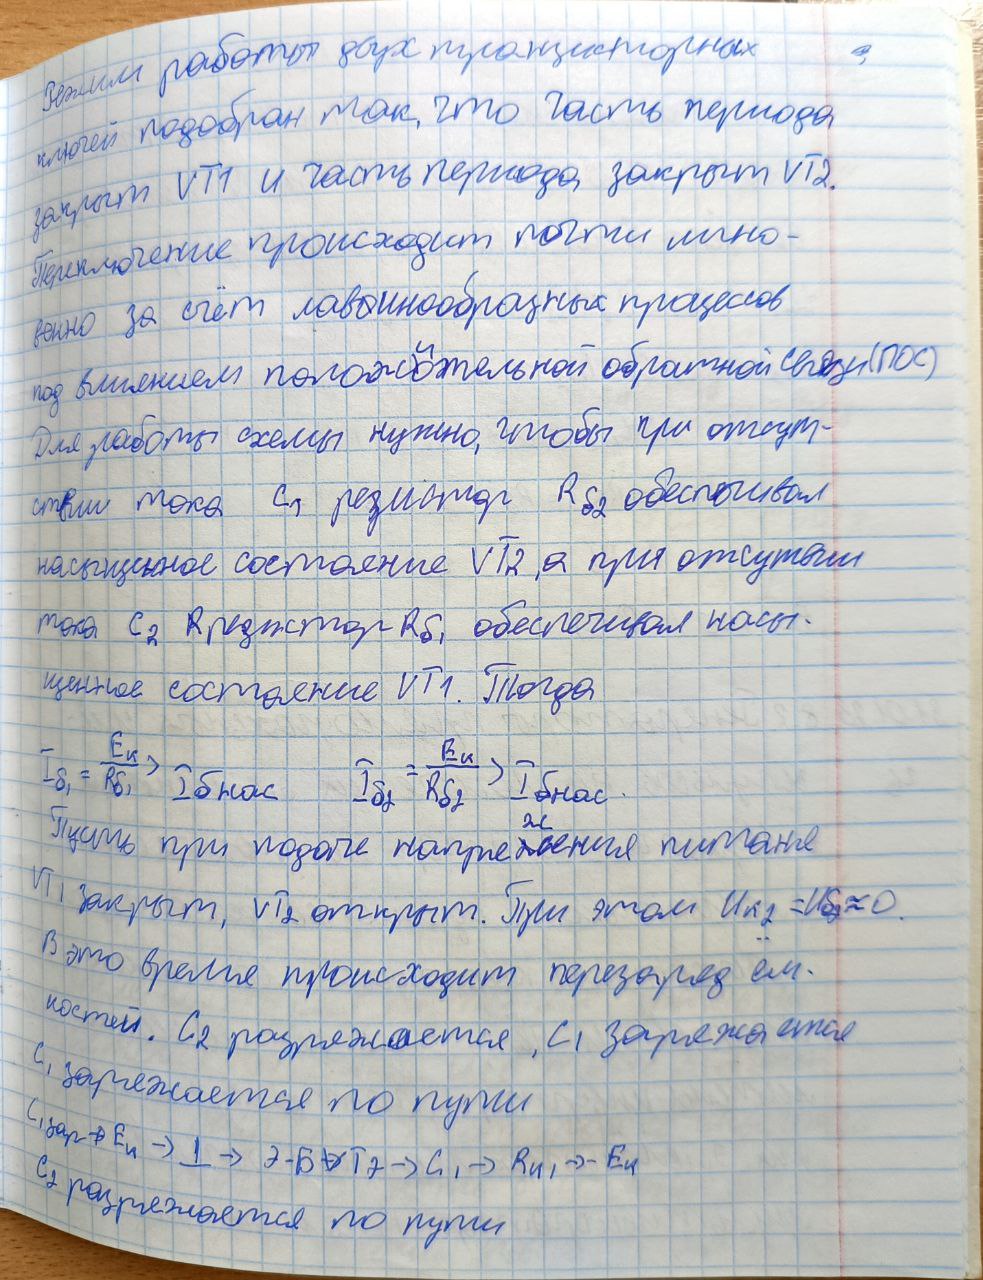 Режим работы двух транзисторных
ключей подобран так, что часть периода
закрыт VT1 и часть периода закрыт VT2.
Переключение происходит почти мгно-
венно за счёт лавинообразных процессов
под влиянием положительной обратной связи (ПОС)
Для работы схемы нужно, чтобы при отсут-
ствии тока C₁ резистор Rб₂ обеспечивал
насыщенное состояние VT2, а при отсутвии
тока C₂ Rрезистор Rб₁ обеспечивал насы-
щенное состояние VT1. Тогда
Iб₁ = Eк/Rб₁ > Iбнас Iб₂ = Eк/Rб₂ > Iбнас.
Пусть при подаче напряжения питания
VT1 закрыт, VT2 открыт. При этом Uк₂ = Uб₂ ≈ 0.
В это время происходит перезаряд ём-
костей. C₂ разряжается, C₁ заряжается
C₁ заряжается по пути
C₁зар + Eк → ⊥ → Э-Б VT2 → C₁ → Rк₁ → - Eк
C₂ разряжается по пути